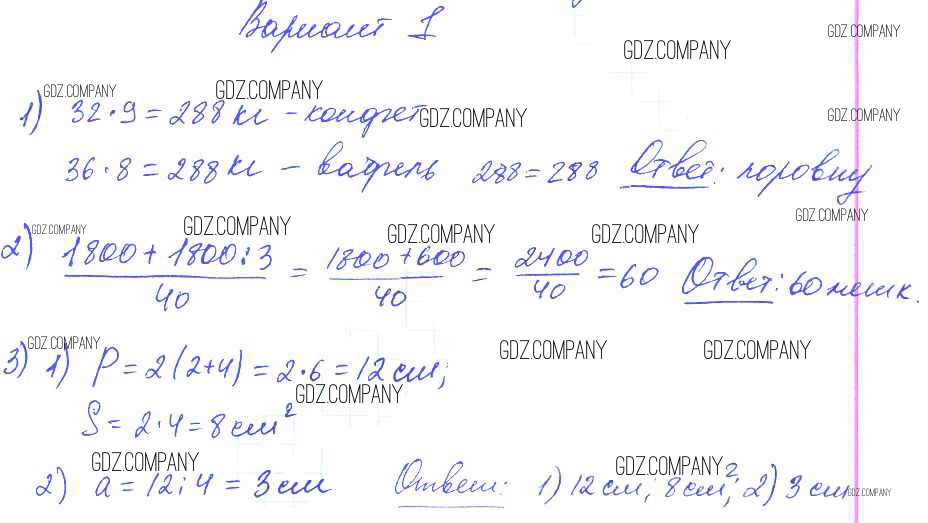 Вариант 1
GDZ.COMPANY
GDZ.COMPANY
GDZ.COMPANY GDZ.COMPANY
1) 32·9=288 кг – конфет GDZ.COMPANY GDZ.COMPANY
36·8=288 кг – вафель 288=288 Ответ: поровну
GDZ.COMPANY
GDZ.COMPANY GDZ.COMPANY GDZ.COMPANY GDZ.COMPANY
2) (1800+1800:3)/40 = (1800+600)/40 = 2400/40 = 60 Ответ: 60 мешк.
GDZ.COMPANY GDZ.COMPANY GDZ.COMPANY
3) 1) P=2(2+4)=2·6=12 см;
GDZ.COMPANY
S=2·4=8 см²
GDZ.COMPANY GDZ.COMPANY
2) a=12:4=3 см Ответы: 1) 12 см; 8 см²; 2) 3 см GDZ.COMPANY